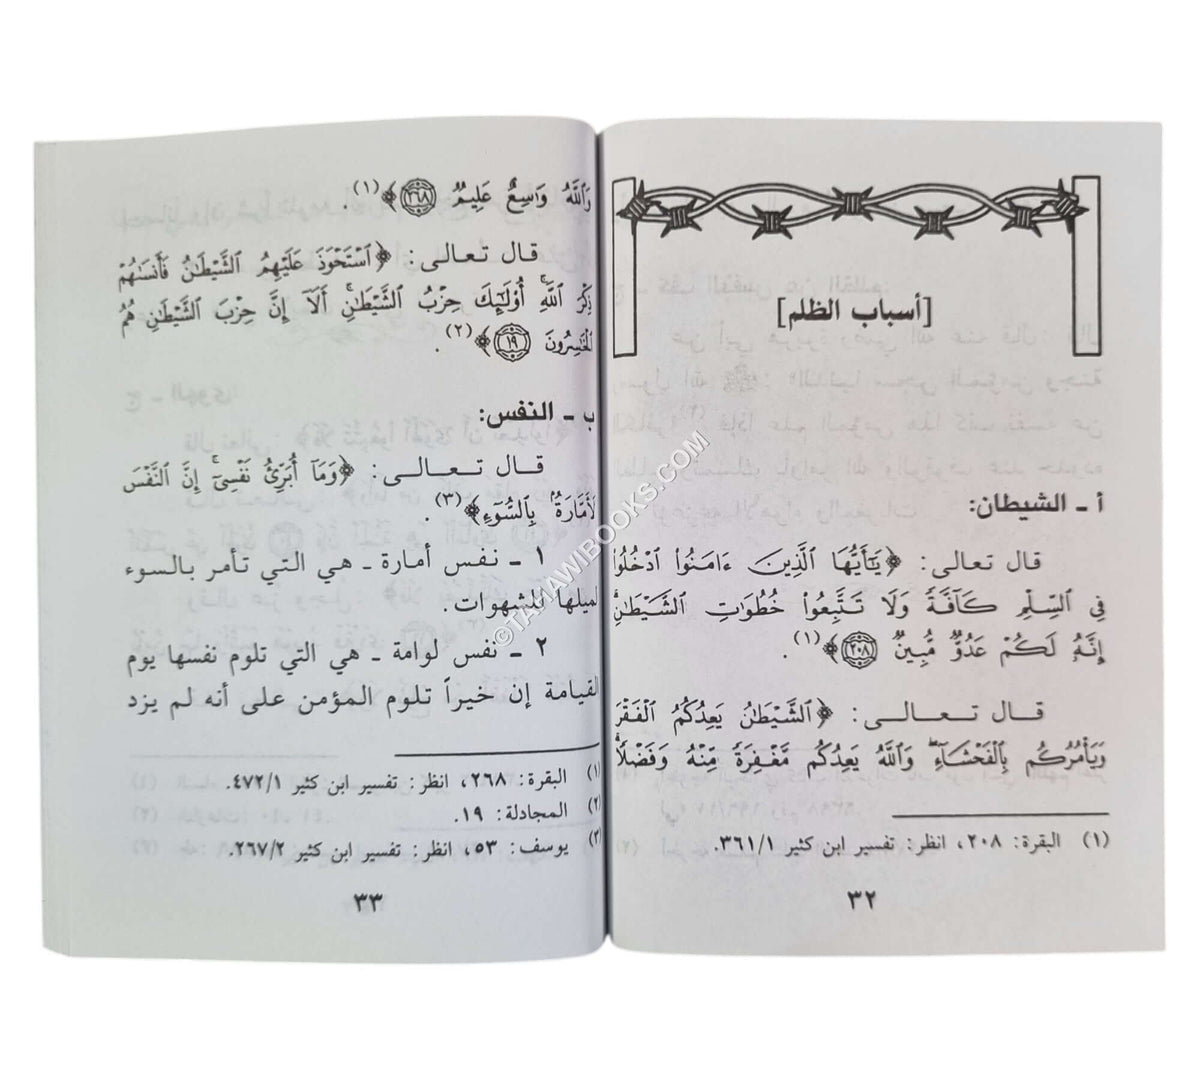 [أسباب الظلم]
أ ـ الشيطان:
قال تعالى: ﴿يَـٰٓأَيُّهَا ٱلَّذِينَ ءَامَنُوا۟ ٱدْخُلُوا۟
فِى ٱلسِّلْمِ كَآفَّةً وَلَا تَتَّبِعُوا۟ خُطُوَٰتِ ٱلشَّيْطَـٰنِۚ
إِنَّهُۥ لَكُمْ عَدُوٌّ مُّبِينٌ ٢٠٨﴾(١).
قال تعالى: ﴿ٱلشَّيْطَـٰنُ يَعِدُكُمُ ٱلْفَقْرَ
وَيَأْمُرُكُم بِٱلْفَحْشَآءِۖ وَٱللَّهُ يَعِدُكُم مَّغْفِرَةً مِّنْهُ وَفَضْلًاۗ
(١) البقرة: ٢٠٨، انظر: تفسير ابن كثير ٣٦١/١.
٣٢
وَٱللَّهُ وَٰسِعٌ عَلِيمٌ ٢٦٨﴾(١).
قال تعالى: ﴿ٱسْتَحْوَذَ عَلَيْهِمُ ٱلشَّيْطَـٰنُ فَأَنسَىٰهُمْ
ذِكْرَ ٱللَّهِۚ أُو۟لَـٰٓئِكَ حِزْبُ ٱلشَّيْطَـٰنِۚ أَلَآ إِنَّ حِزْبَ ٱلشَّيْطَـٰنِ هُمُ
ٱلْخَـٰسِرُونَ ١٩﴾(٢).
ب ـ النفس:
قال تعالى: ﴿وَمَآ أُبَرِّئُ نَفْسِىٓۚ إِنَّ ٱلنَّفْسَ
لَأَمَّارَةٌۢ بِٱلسُّوٓءِ﴾(٣).
١ ـ نفس أمارة ـ هي التي تأمر بالسوء
لميلها للشهوات.
٢ ـ نفس لوامة ـ هي التي تلوم نفسها يوم
القيامة إن خيراً تلوم المؤمن على أنه لم يزد
(١) البقرة: ٢٦٨، انظر: تفسير ابن كثير ٤٧٢/١.
(٢) المجادلة: ١٩.
(٣) يوسف: ٥٣، انظر: تفسير ابن كثير ٢٦٧/٢.
٣٣
©TAHAWIBOOKS.COM